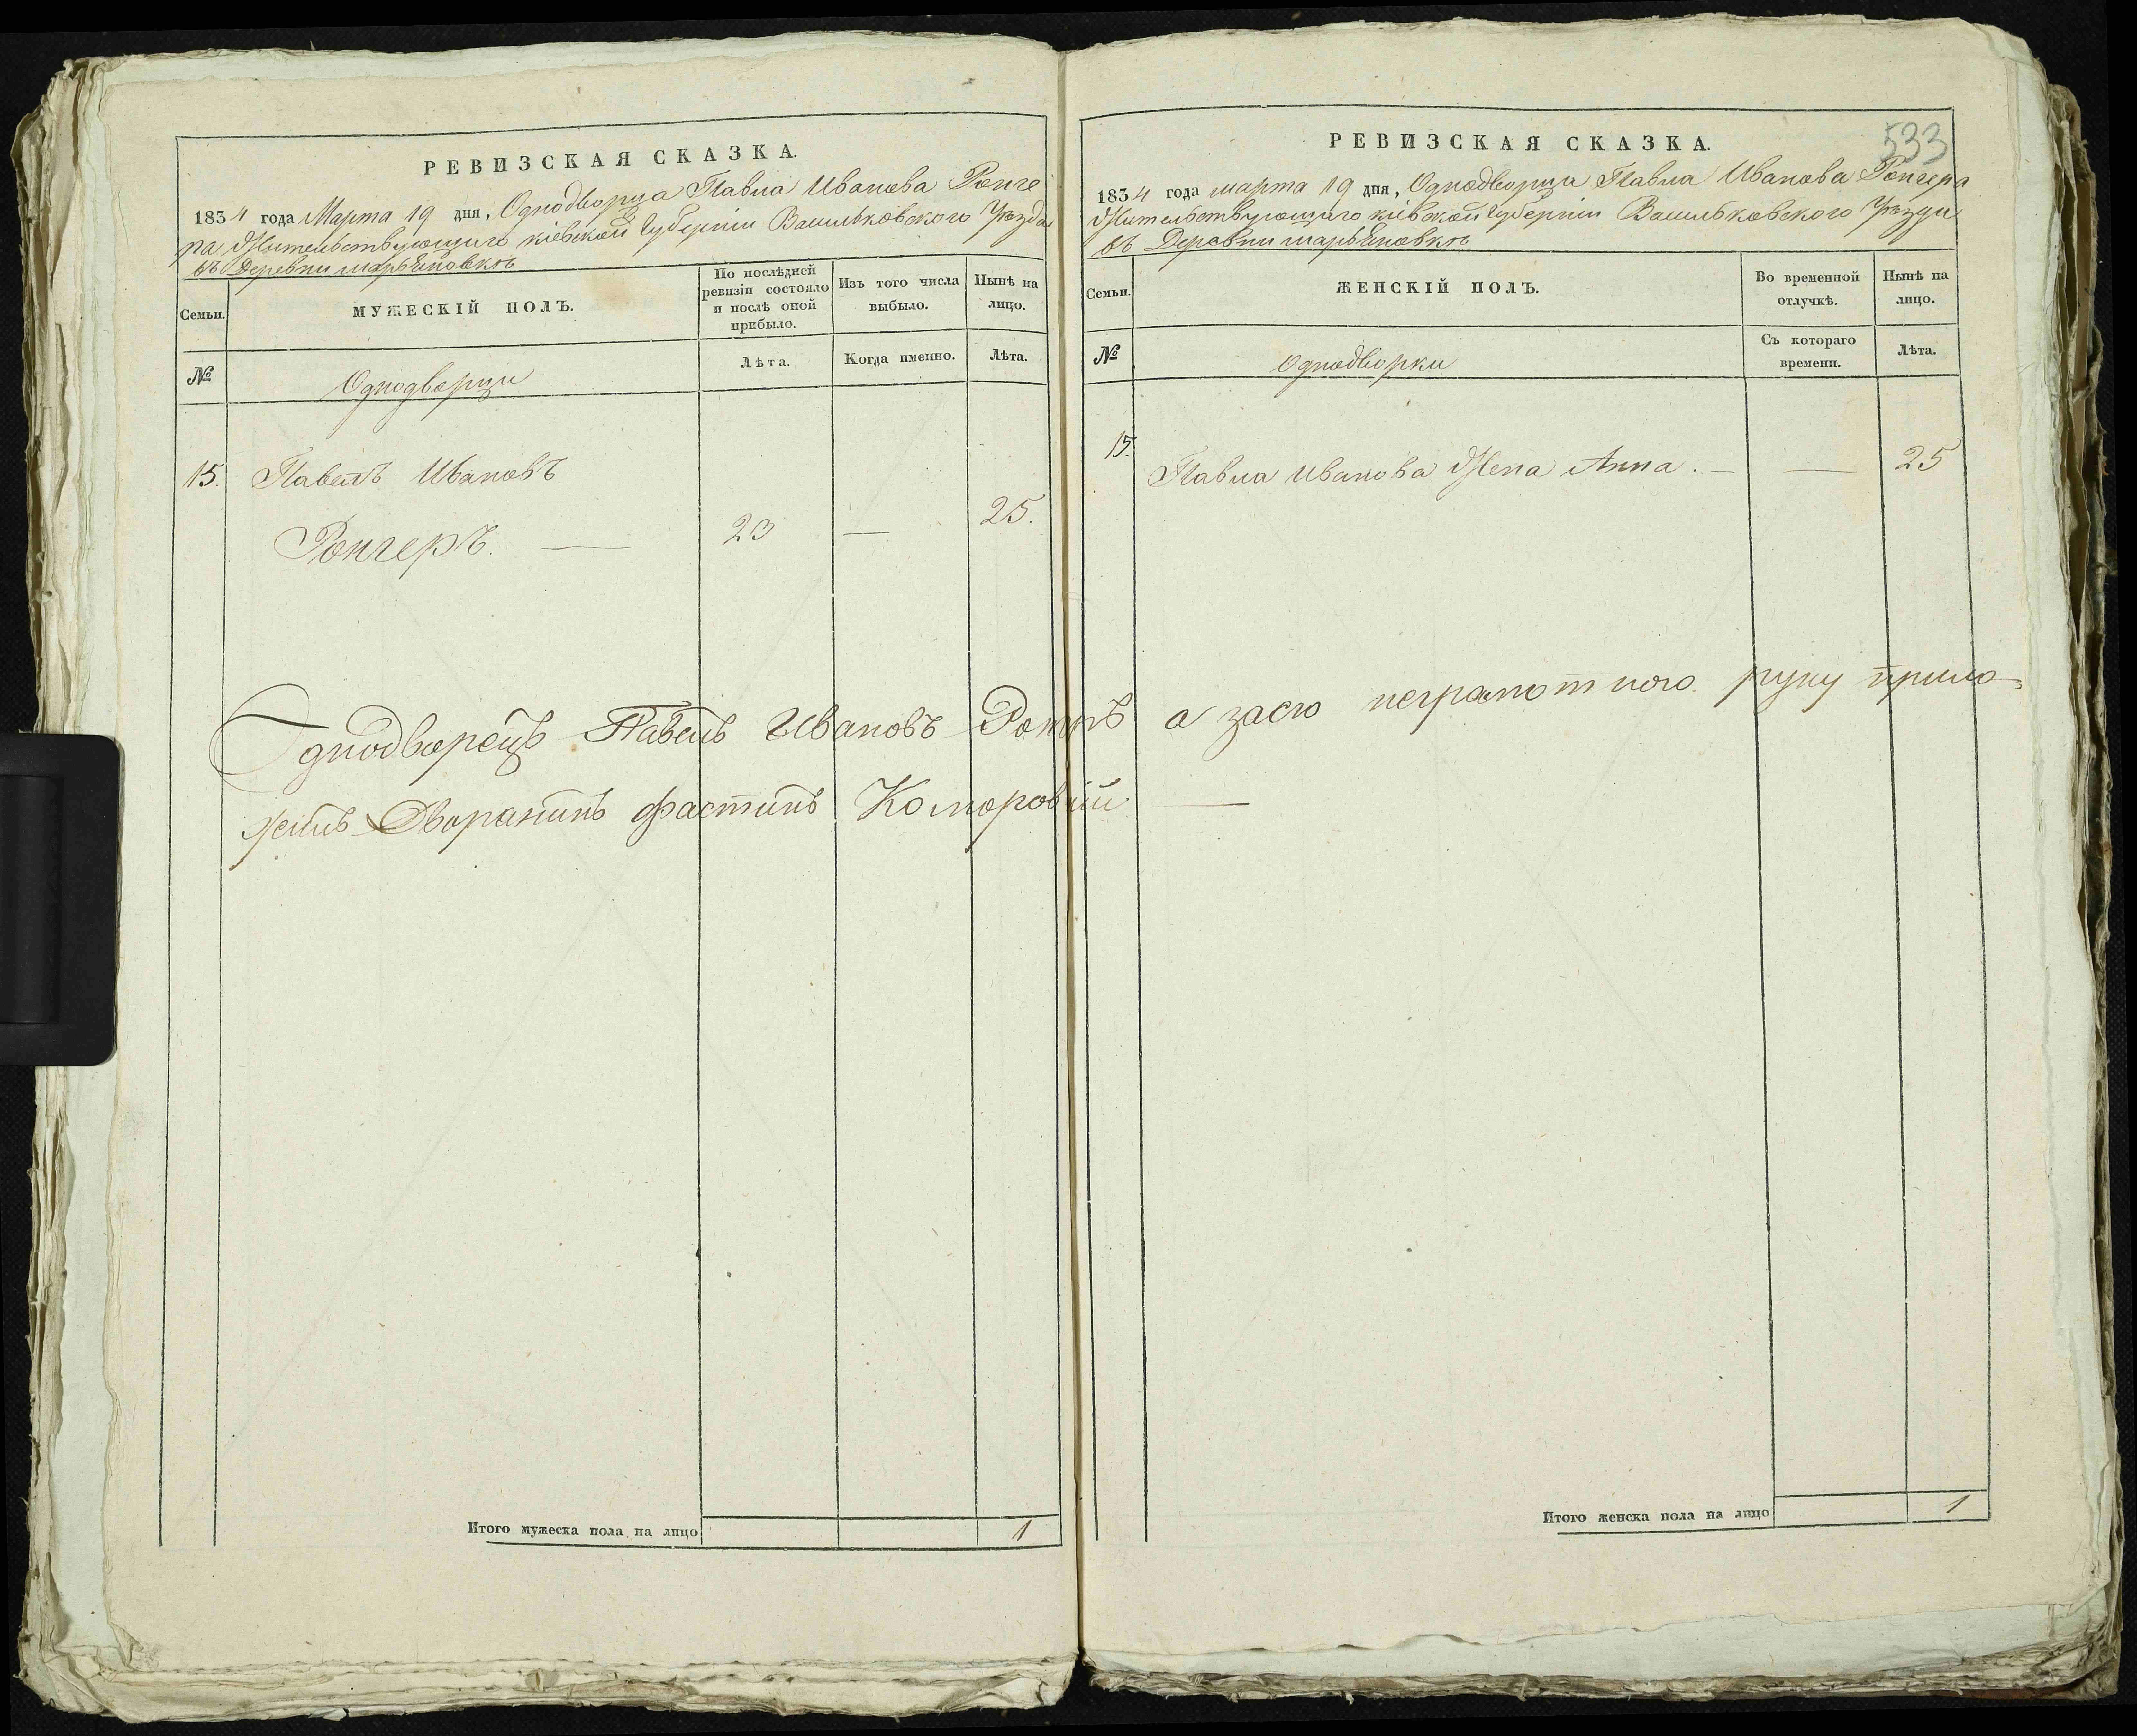 РЕВИЗСКАЯ СКАЗКА.
1834 года Марта 19 дня, Однодворца Павла Иванова Ронге
ра, Жительствующаго кіевской Губерніи Васильковского Уѣзда
въ Деревни Марьяновкѣ
Семьи.
МУЖЕСКІЙ ПОЛЪ.
По послѣдней
ревизіи состояло
и послѣ оной
прибыло.
Изъ того числа
выбыло.
Нынѣ на
лицо.
№
Однодворцы
Лѣта.
Когда именно.
Лѣта.
15. Павелъ Ивановъ
Ронгеръ. — 23 — 25.
Однодворецъ Павелъ Ивановъ
жилъ Дворанинъ Фастинъ
Итого мужеска пола на лицо 1
533
РЕВИЗСКАЯ СКАЗКА.
1834 года марта 19 дня, Однодворца Павла Иванова Ронгера
Жительствующаго кіевской Губерніи Васильковского Уѣзда
въ Деревни Марьяновкѣ
Семьи.
ЖЕНСКІЙ ПОЛЪ.
Во временной
отлучкѣ.
Нынѣ на
лицо.
№
Однодворки
Съ котораго
времени.
Лѣта.
15. Павла Иванова Жена Анна. — — 25
а заего неграмотного руку прило-
Итого женска пола на лицо 1